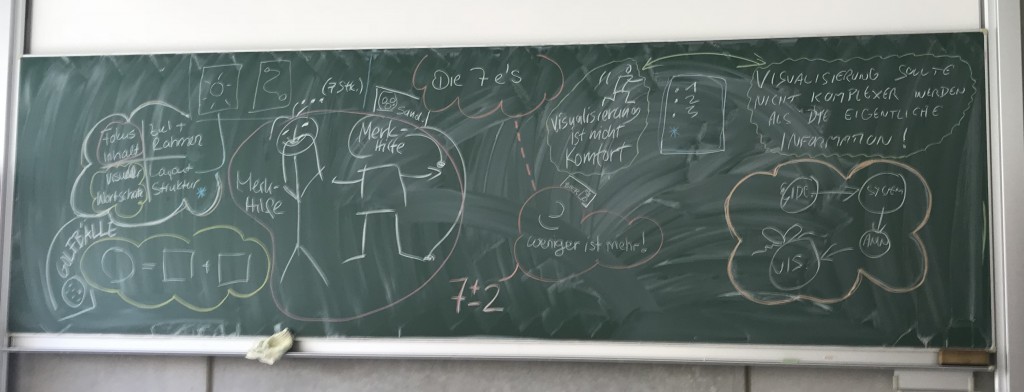 (7 Stk.)
Die 7 e's
Fokus
Inhalt
Ziel +
Rahmen
Layout
Struktur *
Merk-
Hilfe
Merk-
Hilfe
Visualisierung
ist mehr
Komfort
1
2
3
*
VISUALISIERUNG SOLLTE
NICHT KOMPLEXER WERDEN
ALS DIE EIGENTLICHE
INFORMATION!
weniger ist mehr!
7±2
GOLFBÄLLE
= +
VIS.